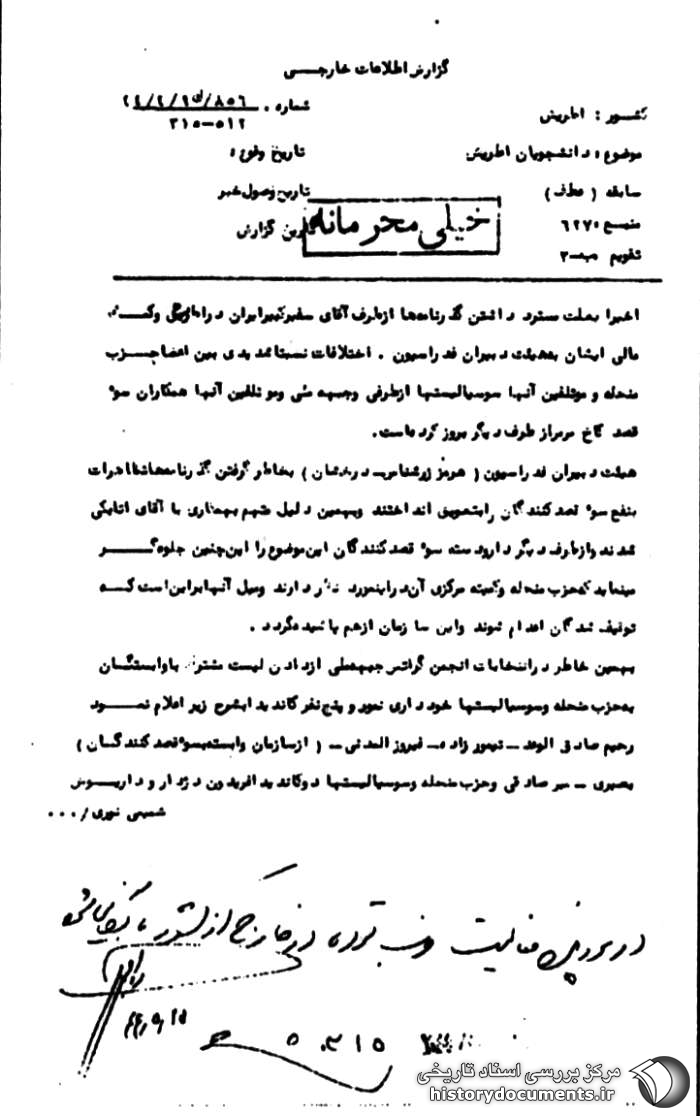 گزارش اطلاعات خارجی
کشور : اطریش
شماره . ۸۵۶/
۳۱۵-۵۱۲
موضوع : دانشجویان اطریش
تاریخ وقوع :
سابقه ( عطف )
تاریخ وصول خبر
منبع : ۶۲۷۰
خیلی محرمانه
گزارش
تقویم ب-۳
اخیرا بعلت مسترد داشتن گذرنامه‌ها ازطرف آقای سفیرکبیرایران در وکمک
مالی ایشان بهیئت دبیران فدراسیون . اختلافات نسبتا شدیدی بین اعضا حزب
منحله و موتلفین آنها سوسیالیستها ازطرفی وجبهه ملی وموتلفین آنها همکاران سوء
قصد کاخ مرمراز طرف دیگر بروز کرده است.
هیئت دبیران فدراسیون ( هرمز ) بخاطر گرفتن گذرنامه‌ها تظاهرات
بنفع سوء قصد کنندگان رابتعویق انداختند وبهمین دلیل متهم بهمکاری با آقای اتابکی
شدند وازطرف دیگر دارودسته سوء قصدکنندگان این موضوع را این‌چنین جلوه‌گر
مینماید که حزب منحله وکمیته مرکزی آن دراینمورد دارند ومیل آنها براین است که
توقیف شدگان اعدام شوند واین سازمان ازهم پاشیده گردد .
بهمین خاطر درانتخابات انجمن گراتس جبهه ملی ازدادن لیست مشترک باوابستگان
به حزب منحله وسوسیالیستها خودداری نمود و پنج نفر کاندید ابشرح زیر اعلام نمود
رحیم صادقی الوند ـ تیمورزاده ـ فیروز المدنی ـ ( ازسازمان وابسته بسوءقصدکنندگان )
بصیری ـ میرصادقی وحزب منحله وسوسیالیستها دوکاندید افریدون داریوش
شمیمی نوری/...
در فعالیت حزب توده در خارج از کشور
۴۴٫۹٫۱۵
۳۱۵
مرکز بررسی اسناد تاریخی
historydocuments.ir